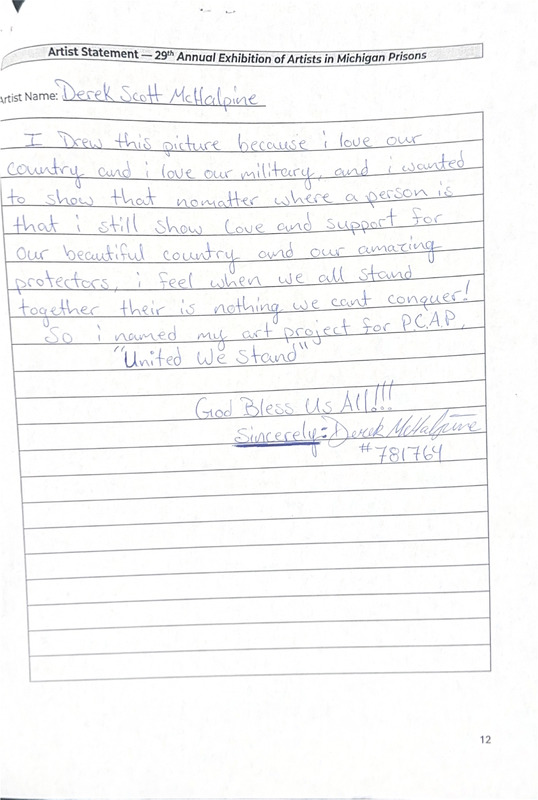 Artist Statement — 29th Annual Exhibition of Artists in Michigan Prisons
Artist Name: Derek Scott McHalpine
I Drew this picture because i love our
country and i love our military, and i wanted
to show that nomatter where a person is
that i still show love and support for
our beautiful country and our amazing
protectors, i feel when we all stand
together their is nothing we cant conquer!
So i named my art project for P.C.A.P.
"United We Stand"
God Bless Us All!!!
Sincerely: Derek McHalpine
#781764
12